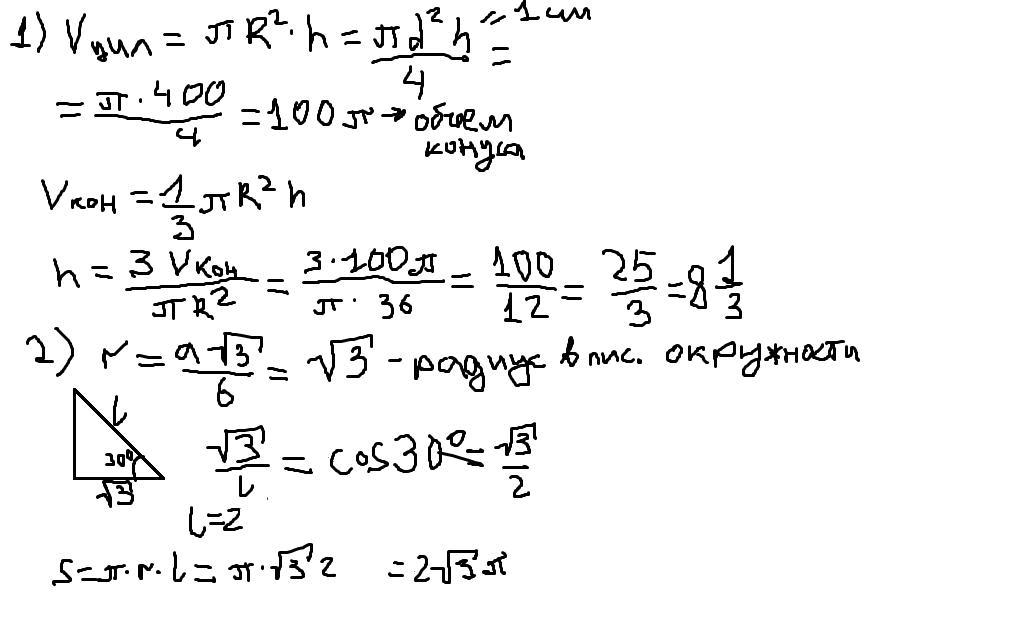 1) Vцил = πR²·h = πd²h/4 = 1см
= π·400/4 = 100π → объем
конуса
Vкон = 1/3 πR²h
h = 3Vкон/πR² = 3·100π/π·36 = 100/12 = 25/3 = 8 1/3
2) r = a√3/6 = √3 - радиус впис. окружности
l
30°
√3
√3/l = cos30° = √3/2
l=2
S=π·r·l=π·√3 2 =2√3π